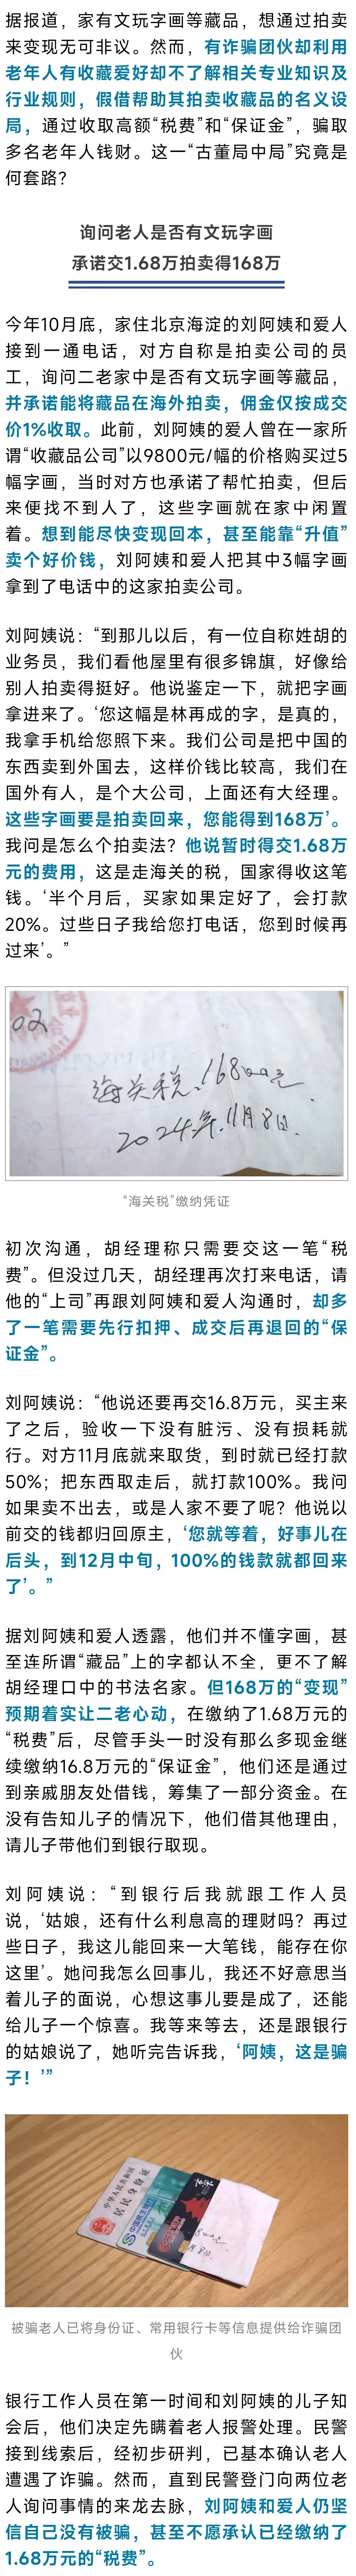 据报道，家有文玩字画等藏品，想通过拍卖
来变现无可非议。然而，有诈骗团伙却利用
老年人有收藏爱好却不了解相关专业知识及
行业规则，假借帮助其拍卖收藏品的名义设
局，通过收取高额“税费”和“保证金”，骗取
多名老年人钱财。这一“古董局中局”究竟是
何套路？
询问老人是否有文玩字画
承诺交1.68万拍卖得168万
今年10月底，家住北京海淀的刘阿姨和爱人
接到一通电话，对方自称是拍卖公司的员
工，询问二老家中是否有文玩字画等藏品，
并承诺能将藏品在海外拍卖，佣金仅按成交
价1%收取。此前，刘阿姨的爱人曾在一家所
谓“收藏品公司”以9800元/幅的价格购买过5
幅字画，当时对方也承诺了帮忙拍卖，但后
来便找不到人了，这些字画就在家中闲置
着。想到能尽快变现回本，甚至能靠“升值”
卖个好价钱，刘阿姨和爱人把其中3幅字画
拿到了电话中的这家拍卖公司。
刘阿姨说：“到那儿以后，有一位自称姓胡的
业务员，我们看他屋里有很多锦旗，好像给
别人拍卖得挺好。他说鉴定一下，就把字画
拿进来了。‘您这幅是林再成的字，是真的，
我拿手机给您照下来。我们公司是把中国的
东西卖到外国去，这样价钱比较高，我们在
国外有人，是个大公司，上面还有大经理。
这些字画要是拍卖回来，您能得到168万’。
我问是怎么个拍卖法？他说暂时得交1.68万
元的费用，这是走海关的税，国家得收这笔
钱。‘半个月后，买家如果定好了，会打款
20%。过些日子我给您打电话，您到时候再
过来’。”
02
海关税：16800元.
2024年.11月8日.
“海关税”缴纳凭证
初次沟通，胡经理称只需要交这一笔“税
费”。但没过几天，胡经理再次打来电话，请
他的“上司”再跟刘阿姨和爱人沟通时，却多
了一笔需要先行扣押、成交后再退回的“保
证金”。
刘阿姨说：“他说还要再交16.8万元，买主来
了之后，验收一下没有脏污、没有损耗就
行。对方11月底就来取货，到时就已经打款
50%；把东西取走后，就打款100%。我问
如果卖不出去，或是人家不要了呢？他说以
前交的钱都归回原主，‘您就等着，好事儿在
后头，到12月中旬，100%的钱款就都回来
了’。”
据刘阿姨和爱人透露，他们并不懂字画，甚
至连所谓“藏品”上的字都认不全，更不了解
胡经理口中的书法名家。但168万的“变现”
预期着实让二老心动，在缴纳了1.68万元的
“税费”后，尽管手头一时没有那么多现金继
续缴纳16.8万元的“保证金”，他们还是通过
到亲戚朋友处借钱，筹集了一部分资金。在
没有告知儿子的情况下，他们借其他理由，
请儿子带他们到银行取现。
刘阿姨说：“到银行后我就跟工作人员
说，‘姑娘，还有什么利息高的理财吗？再过
些日子，我这儿能回来一大笔钱，能存在你
这里’。她问我怎么回事儿，我还不好意思当
着儿子的面说，心想这事儿要是成了，还能
给儿子一个惊喜。我等来等去，还是跟银行
的姑娘说了，她听完告诉我，‘阿姨，这是骗
子！’”
中华人民共和国
居民身份证
被骗老人已将身份证、常用银行卡等信息提供给诈骗团
伙
银行工作人员在第一时间和刘阿姨的儿子知
会后，他们决定先瞒着老人报警处理。民警
接到线索后，经初步研判，已基本确认老人
遭遇了诈骗。然而，直到民警登门向两位老
人询问事情的来龙去脉，刘阿姨和爱人仍坚
信自己没有被骗，甚至不愿承认已经缴纳了
1.68万元的“税费”。